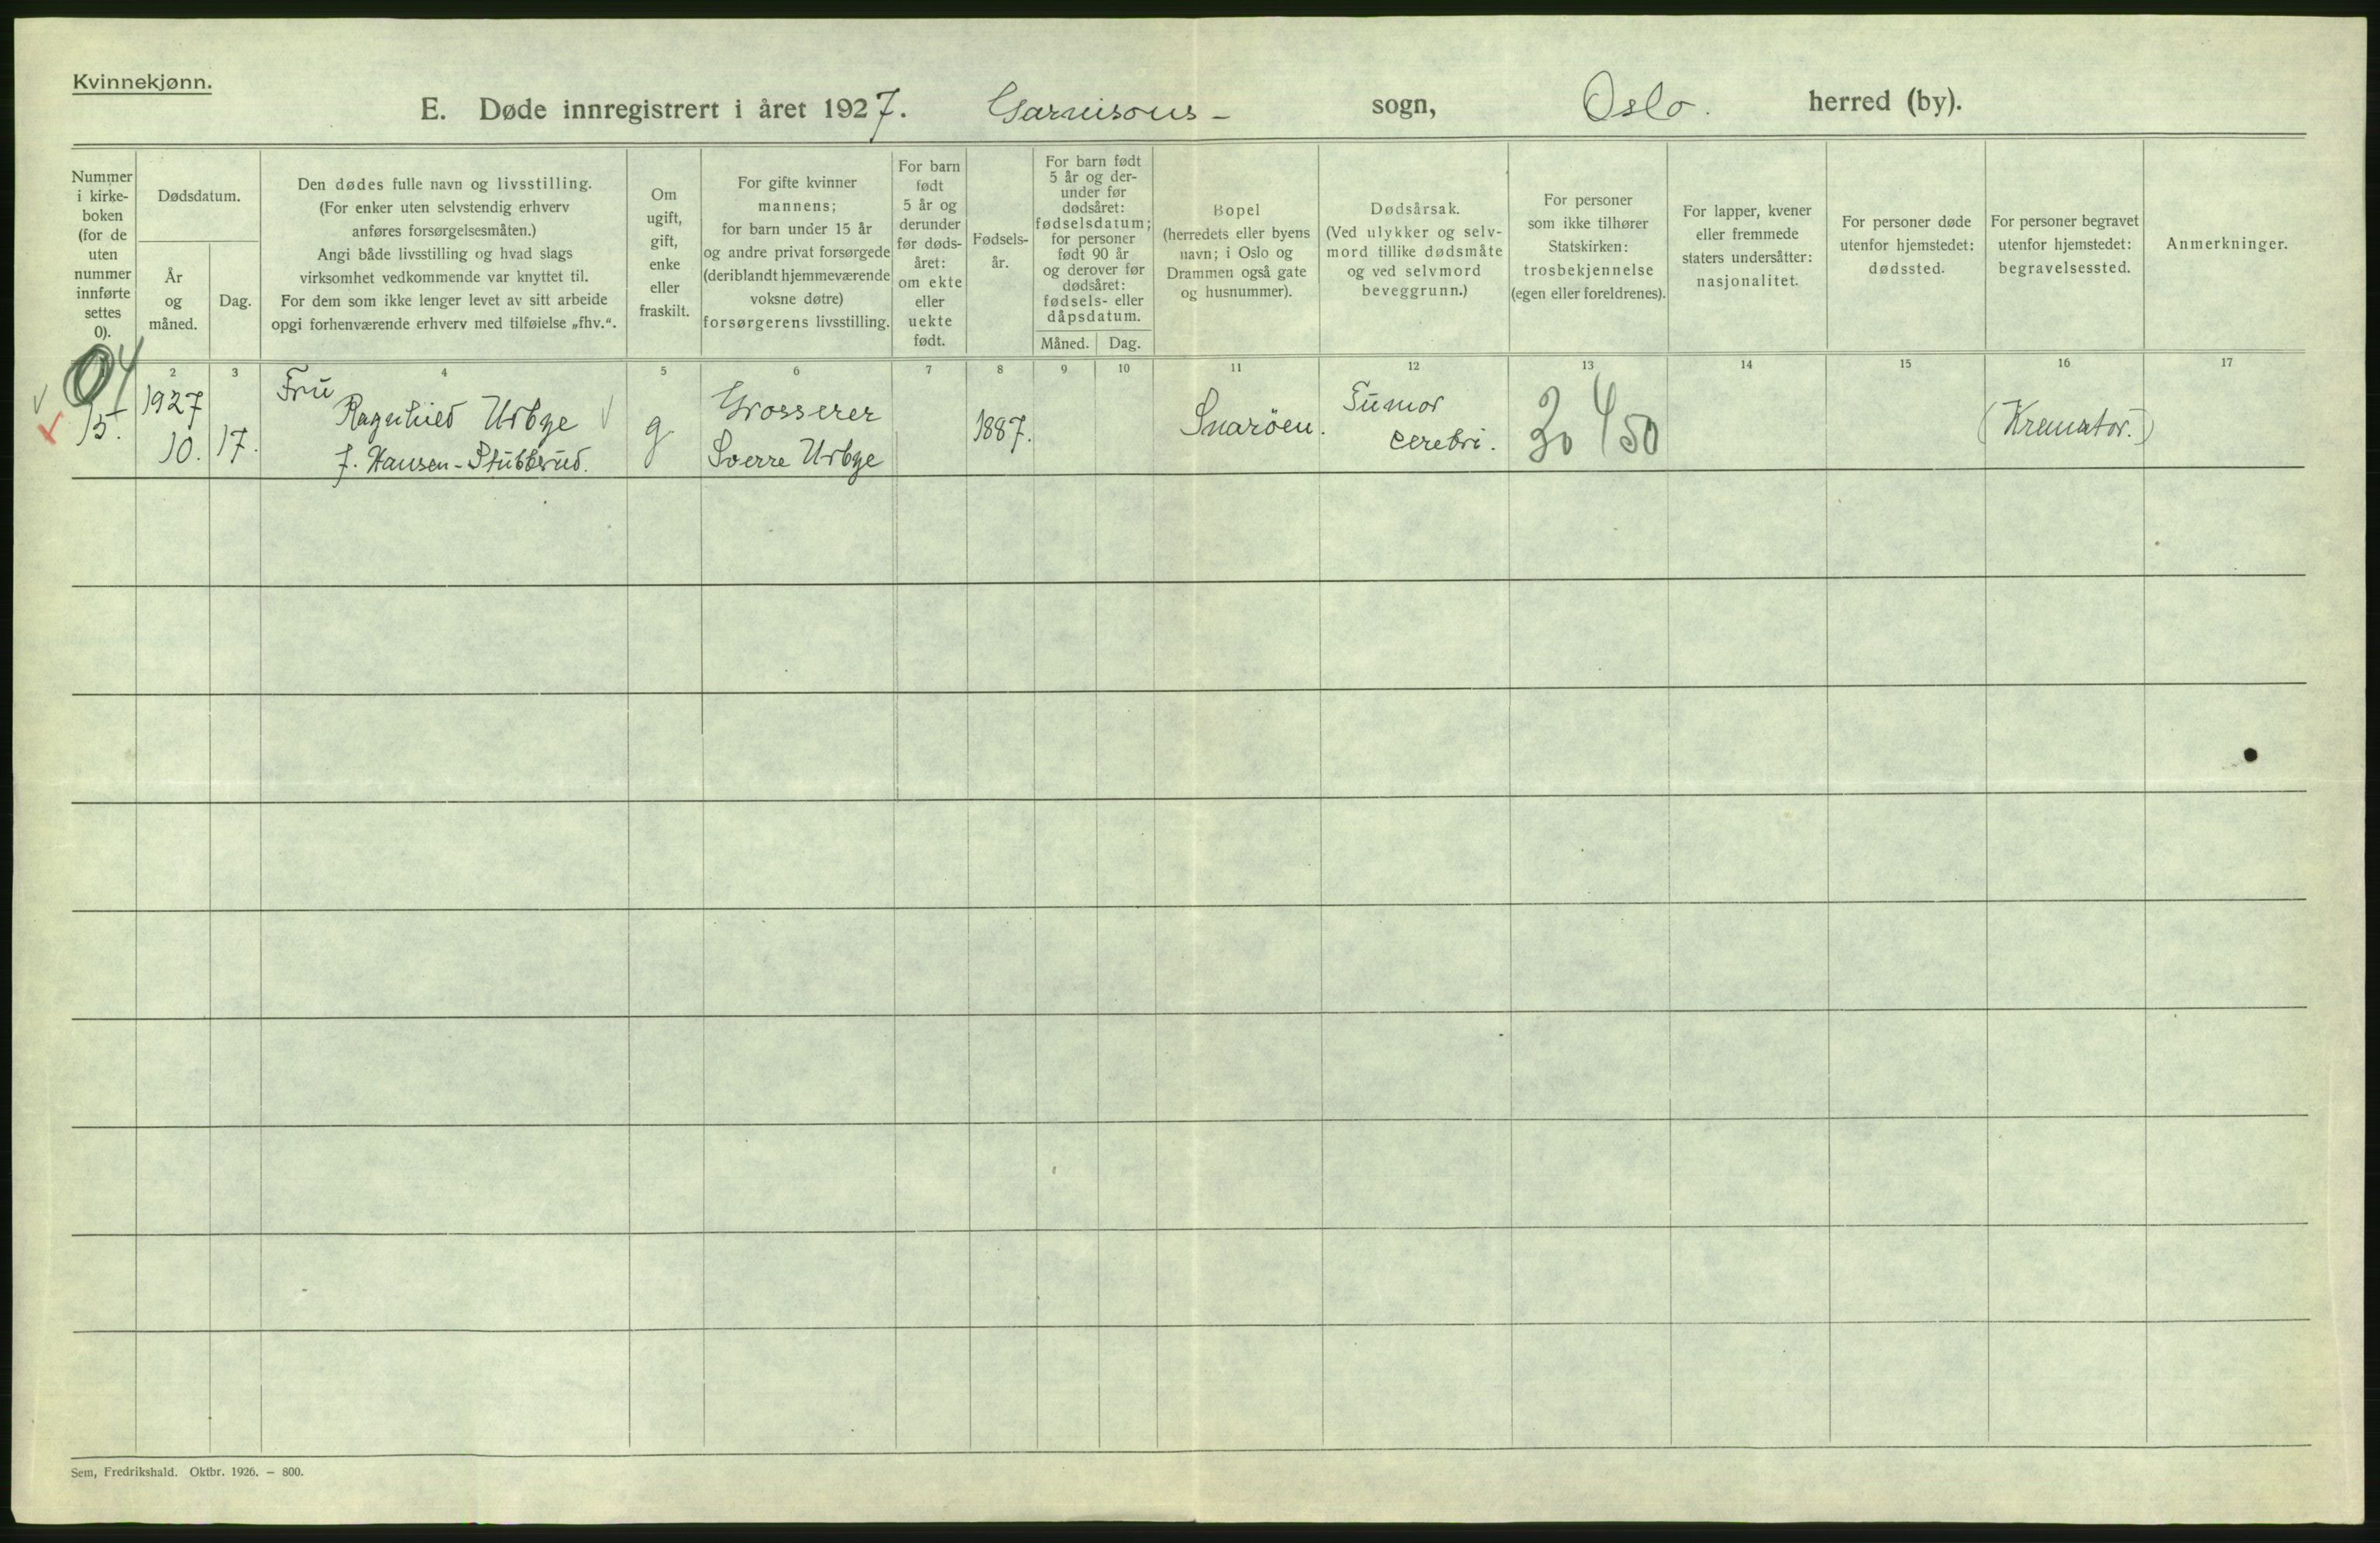 Kvinnekjønn.
E. Døde innregistrert i året 1927. Garnisons- sogn, Oslo. herred (by).
Nummer
i kirke-
boken
(for de
uten
nummer
innførte
settes
0).
Dødsdatum.
År
og
måned.
Dag.
Den dødes fulle navn og livsstilling.
(For enker uten selvstendig erhverv
anføres forsørgelsesmåten.)
Angi både livsstilling og hvad slags
virksomhet vedkommende var knyttet til.
For dem som ikke lenger levet av sitt arbeide
opgi forhenværende erhverv med tilføielse „fhv.“.
Om
ugift,
gift,
enke
eller
fraskilt.
For gifte kvinner
mannens;
for barn under 15 år
og andre privat forsørgede
(deriblandt hjemmeværende
voksne døtre)
forsørgerens livsstilling.
For barn
født
5 år og
derunder
før døds-
året:
om ekte
eller
uekte
født.
Fødsels-
år.
For barn født
5 år og der-
under før
dødsåret:
fødselsdatum;
for personer
født 90 år
og derover før
dødsåret:
fødsels- eller
dåpsdatum.
Måned. Dag.
Bopel
(herredets eller byens
navn; i Oslo og
Drammen også gate
og husnummer).
Dødsårsak.
(Ved ulykker og selv-
mord tillike dødsmåte
og ved selvmord
beveggrunn.)
For personer
som ikke tilhører
Statskirken:
trosbekjennelse
(egen eller foreldrenes).
For lapper, kvener
eller fremmede
staters undersåtter:
nasjonalitet.
For personer døde
utenfor hjemstedet:
dødssted.
For personer begravet
utenfor hjemstedet:
begravelsessted.
Anmerkninger.
2 3 4 5 6 7 8 9 10 11 12 13 14 15 16 17
04
15.
1927
10. 17.
Fru
Ragnhild Urbye
f. Hansen-Stubberud.
g
Grosserer
Sverre Urbye
1887.
Snarøen.
Tumor
cerebri.
50
(Kremator.)
Sem, Fredrikshald. Oktbr. 1926. — 800.